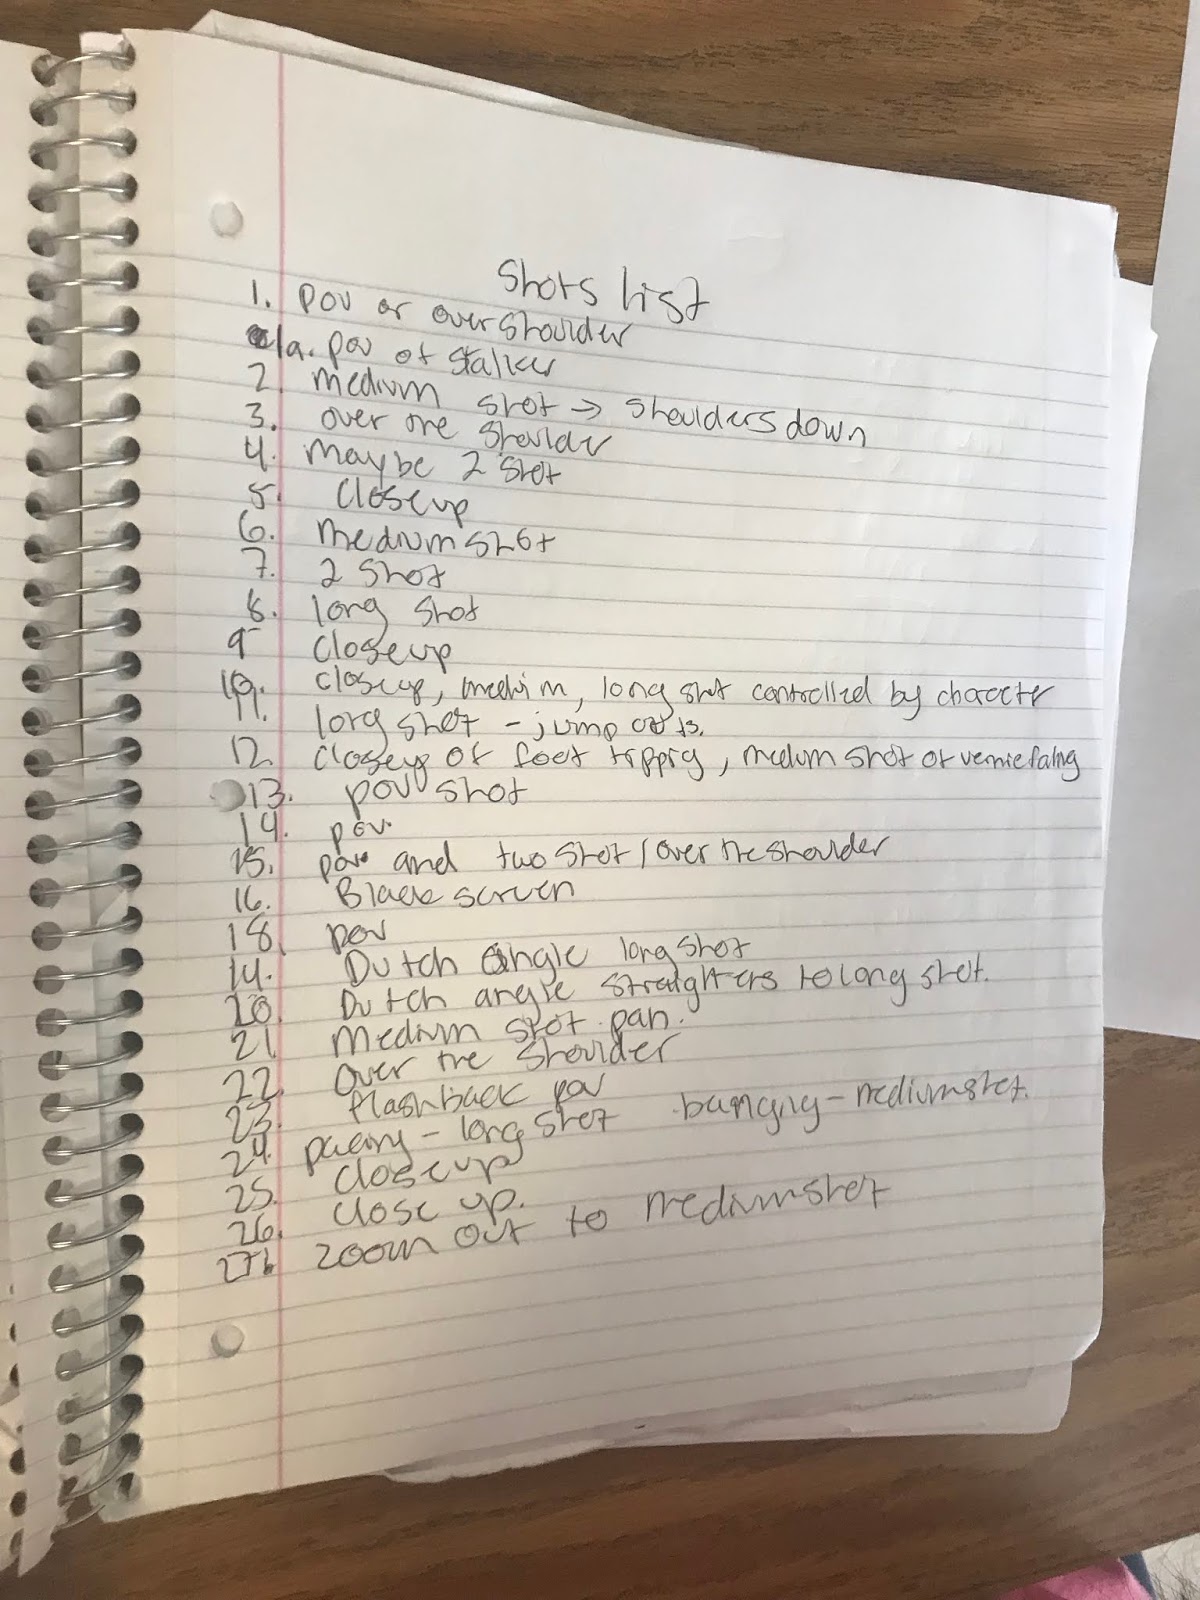 Shots list
1. pov or over shoulder
1a. pov of stalker
2. medium shot → shoulders down
3. over the shoulder
4. maybe 2 shot
5. closeup
6. medium shot
7. 2 shot
8. long shot
9 closeup
10. closeup, medium, long shot controlled by character
11. long shot - jump cuts.
12. closeup of foot tripping, medium shot of falling
13. pov shot
14. pov.
15. pov and two shot / over the shoulder
16. Black screen
18. pov
19. Dutch angle long shot
20. Dutch angle straighters to long shot.
21. Medium shot pan.
22. over the shoulder
23. flashback pov
24. pacing - long shot banging - medium shot.
25. closeup
26. close up.
27b zoom out to medium shot